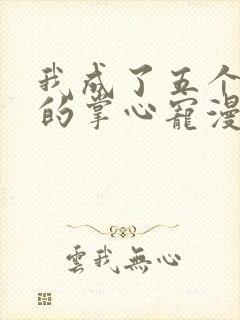 我成了五个
的掌心宠漫
雲我無心